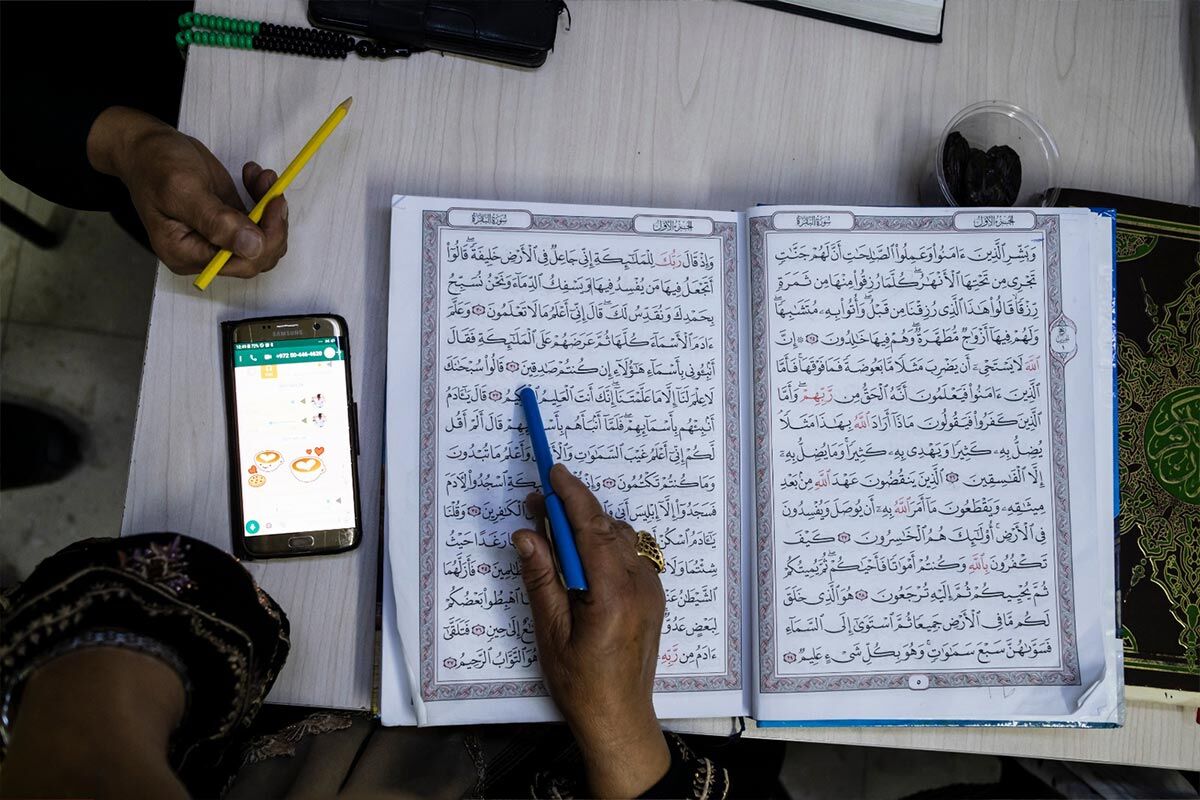 الجزء الأول
سورة البقرة
وَبَشِّرِ ٱلَّذِينَ ءَامَنُوا۟ وَعَمِلُوا۟ ٱلصَّٰلِحَٰتِ أَنَّ لَهُمْ جَنَّٰتٍ
تَجْرِى مِن تَحْتِهَا ٱلْأَنْهَٰرُ ۖ كُلَّمَا رُزِقُوا۟ مِنْهَا مِن ثَمَرَةٍ
رِّزْقًا ۙ قَالُوا۟ هَٰذَا ٱلَّذِى رُزِقْنَا مِن قَبْلُ ۖ وَأُتُوا۟ بِهِۦ مُتَشَٰبِهًا ۖ
وَلَهُمْ فِيهَآ أَزْوَٰجٌ مُّطَهَّرَةٌ ۖ وَهُمْ فِيهَا خَٰلِدُونَ ٢٥ ۞ إِنَّ
ٱللَّهَ لَا يَسْتَحْىِۦٓ أَن يَضْرِبَ مَثَلًا مَّا بَعُوضَةً فَمَا فَوْقَهَا ۚ فَأَمَّا
ٱلَّذِينَ ءَامَنُوا۟ فَيَعْلَمُونَ أَنَّهُ ٱلْحَقُّ مِن رَّبِّهِمْ ۖ وَأَمَّا
ٱلَّذِينَ كَفَرُوا۟ فَيَقُولُونَ مَاذَآ أَرَادَ ٱللَّهُ بِهَٰذَا مَثَلًا ۘ
يُضِلُّ بِهِۦ كَثِيرًا وَيَهْدِى بِهِۦ كَثِيرًا ۚ وَمَا يُضِلُّ بِهِۦٓ
إِلَّا ٱلْفَٰسِقِينَ ٢٦ ٱلَّذِينَ يَنقُضُونَ عَهْدَ ٱللَّهِ مِنۢ بَعْدِ
مِيثَٰقِهِۦ وَيَقْطَعُونَ مَآ أَمَرَ ٱللَّهُ بِهِۦٓ أَن يُوصَلَ وَيُفْسِدُونَ
فِى ٱلْأَرْضِ ۚ أُو۟لَٰٓئِكَ هُمُ ٱلْخَٰسِرُونَ ٢٧ كَيْفَ
تَكْفُرُونَ بِٱللَّهِ وَكُنتُمْ أَمْوَٰتًا فَأَحْيَٰكُمْ ۖ ثُمَّ يُمِيتُكُمْ
ثُمَّ يُحْيِيكُمْ ثُمَّ إِلَيْهِ تُرْجَعُونَ ٢٨ هُوَ ٱلَّذِى خَلَقَ
لَكُم مَّا فِى ٱلْأَرْضِ جَمِيعًا ثُمَّ ٱسْتَوَىٰٓ إِلَى ٱلسَّمَآءِ
فَسَوَّىٰهُنَّ سَبْعَ سَمَٰوَٰتٍ ۚ وَهُوَ بِكُلِّ شَىْءٍ عَلِيمٌ ٢٩
٥
الجزء الأول
سورة البقرة
وَإِذْ قَالَ رَبُّكَ لِلْمَلَٰٓئِكَةِ إِنِّى جَاعِلٌ فِى ٱلْأَرْضِ خَلِيفَةً ۖ قَالُوٓا۟
أَتَجْعَلُ فِيهَا مَن يُفْسِدُ فِيهَا وَيَسْفِكُ ٱلدِّمَآءَ وَنَحْنُ نُسَبِّحُ
بِحَمْدِكَ وَنُقَدِّسُ لَكَ ۖ قَالَ إِنِّىٓ أَعْلَمُ مَا لَا تَعْلَمُونَ ٣٠ وَعَلَّمَ
ءَادَمَ ٱلْأَسْمَآءَ كُلَّهَا ثُمَّ عَرَضَهُمْ عَلَى ٱلْمَلَٰٓئِكَةِ فَقَالَ
أَنۢبِـُٔونِى بِأَسْمَآءِ هَٰٓؤُلَآءِ إِن كُنتُمْ صَٰدِقِينَ ٣١ قَالُوا۟ سُبْحَٰنَكَ
لَا عِلْمَ لَنَآ إِلَّا مَا عَلَّمْتَنَآ ۖ إِنَّكَ أَنتَ ٱلْعَلِيمُ ٣٢ قَالَ يَٰٓـَٔادَمُ
أَنۢبِئْهُم بِأَسْمَآئِهِمْ ۖ فَلَمَّآ أَنۢبَأَهُم بِأَسْمَآئِهِمْ قَالَ أَلَمْ أَقُل
لَّكُمْ إِنِّىٓ أَعْلَمُ غَيْبَ ٱلسَّمَٰوَٰتِ وَٱلْأَرْضِ وَأَعْلَمُ مَا تُبْدُونَ
وَمَا كُنتُمْ تَكْتُمُونَ ٣٣ وَإِذْ ٱسْجُدُوا۟ لِـَٔادَمَ
فَسَجَدُوٓا۟ إِلَّآ إِبْلِيسَ أَبَىٰ ٱلْكَٰفِرِينَ ٣٤ وَقُلْنَا
يَٰٓـَٔادَمُ ٱسْكُنْ رَغَدًا حَيْثُ
شِئْتُمَا وَلَا ٣٥ فَأَزَلَّهُمَا
ٱلشَّيْطَٰنُ ٱهْبِطُوا۟ بَعْضُكُمْ
لِبَعْضٍ عَدُوٌّ إِلَىٰ حِينٍ ٣٦ فَتَلَقَّىٰٓ
ءَادَمُ مِن رَّبِّهِۦ هُوَ ٱلتَّوَّابُ ٱلرَّحِيمُ ٣٧
SAMSUNG